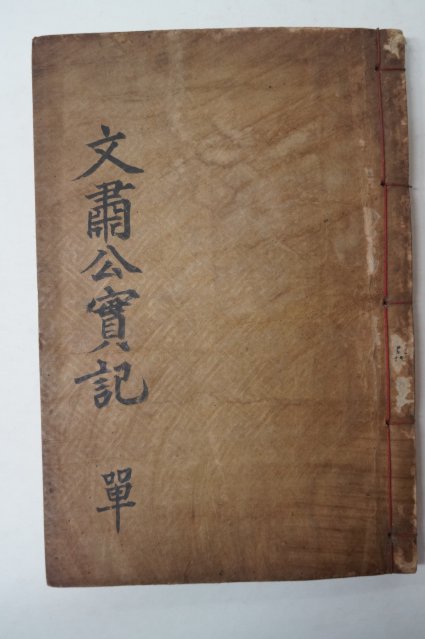 文肅公實記 單